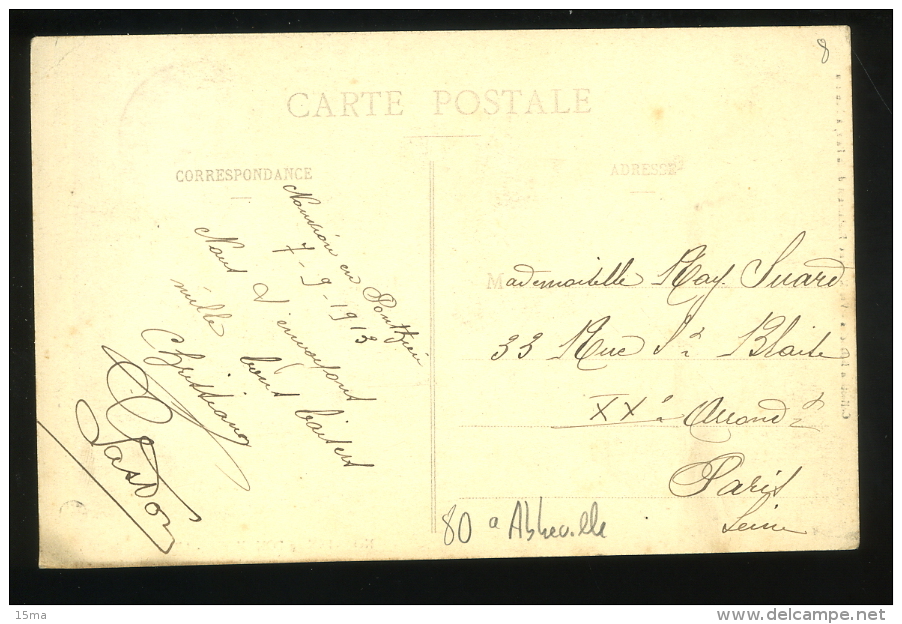 8
CARTE POSTALE
CORRESPONDANCE
ADRESSE
Nouvion en Ponthieu
7-9-1913
Nous t'envoyons
mille bons baisers
Christiane
Gaston
Mademoiselle May. Suard
33 Rue St Blaise
XXe Arrondt
Paris
Seine
80 a Abbeville
15ma
delcampe.net